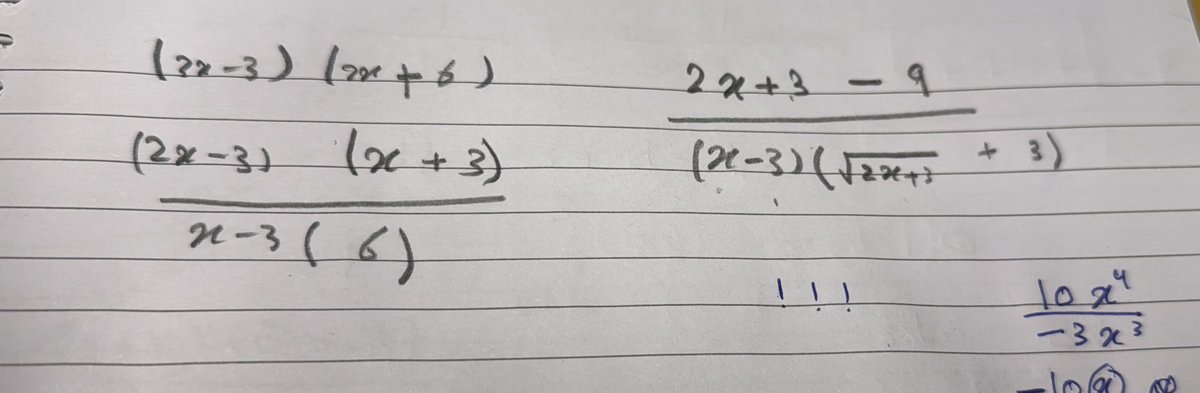 (2x-3) (2x+6)
(2x-3) (x+3)
x-3 ( 6)
2x+3 - 9
(x-3)(√2x+3 + 3)
! ! !
10x⁴
-3x³
-10x ∞